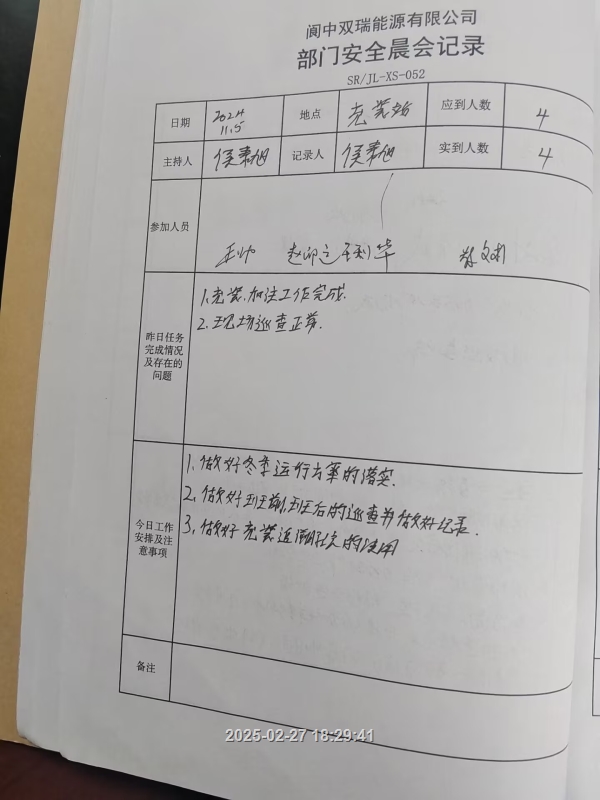 阆中双瑞能源有限公司
部门安全晨会记录
SR/JL-XS-052
日期 2024 11.5 地点 充装站 应到人数 4
主持人 侯秉旭 记录人 侯秉旭 实到人数 4
参加人员 王帅
昨日任务完成情况及存在的问题
1.充装.加注工作完成.
2.现场巡查正常.
今日工作安排及注意事项
1.做好冬季运行方案的落实.
2.做好班前,班后的巡查并做好记录.
3.做好充装的使用
备注
2025-02-27 18:29:41